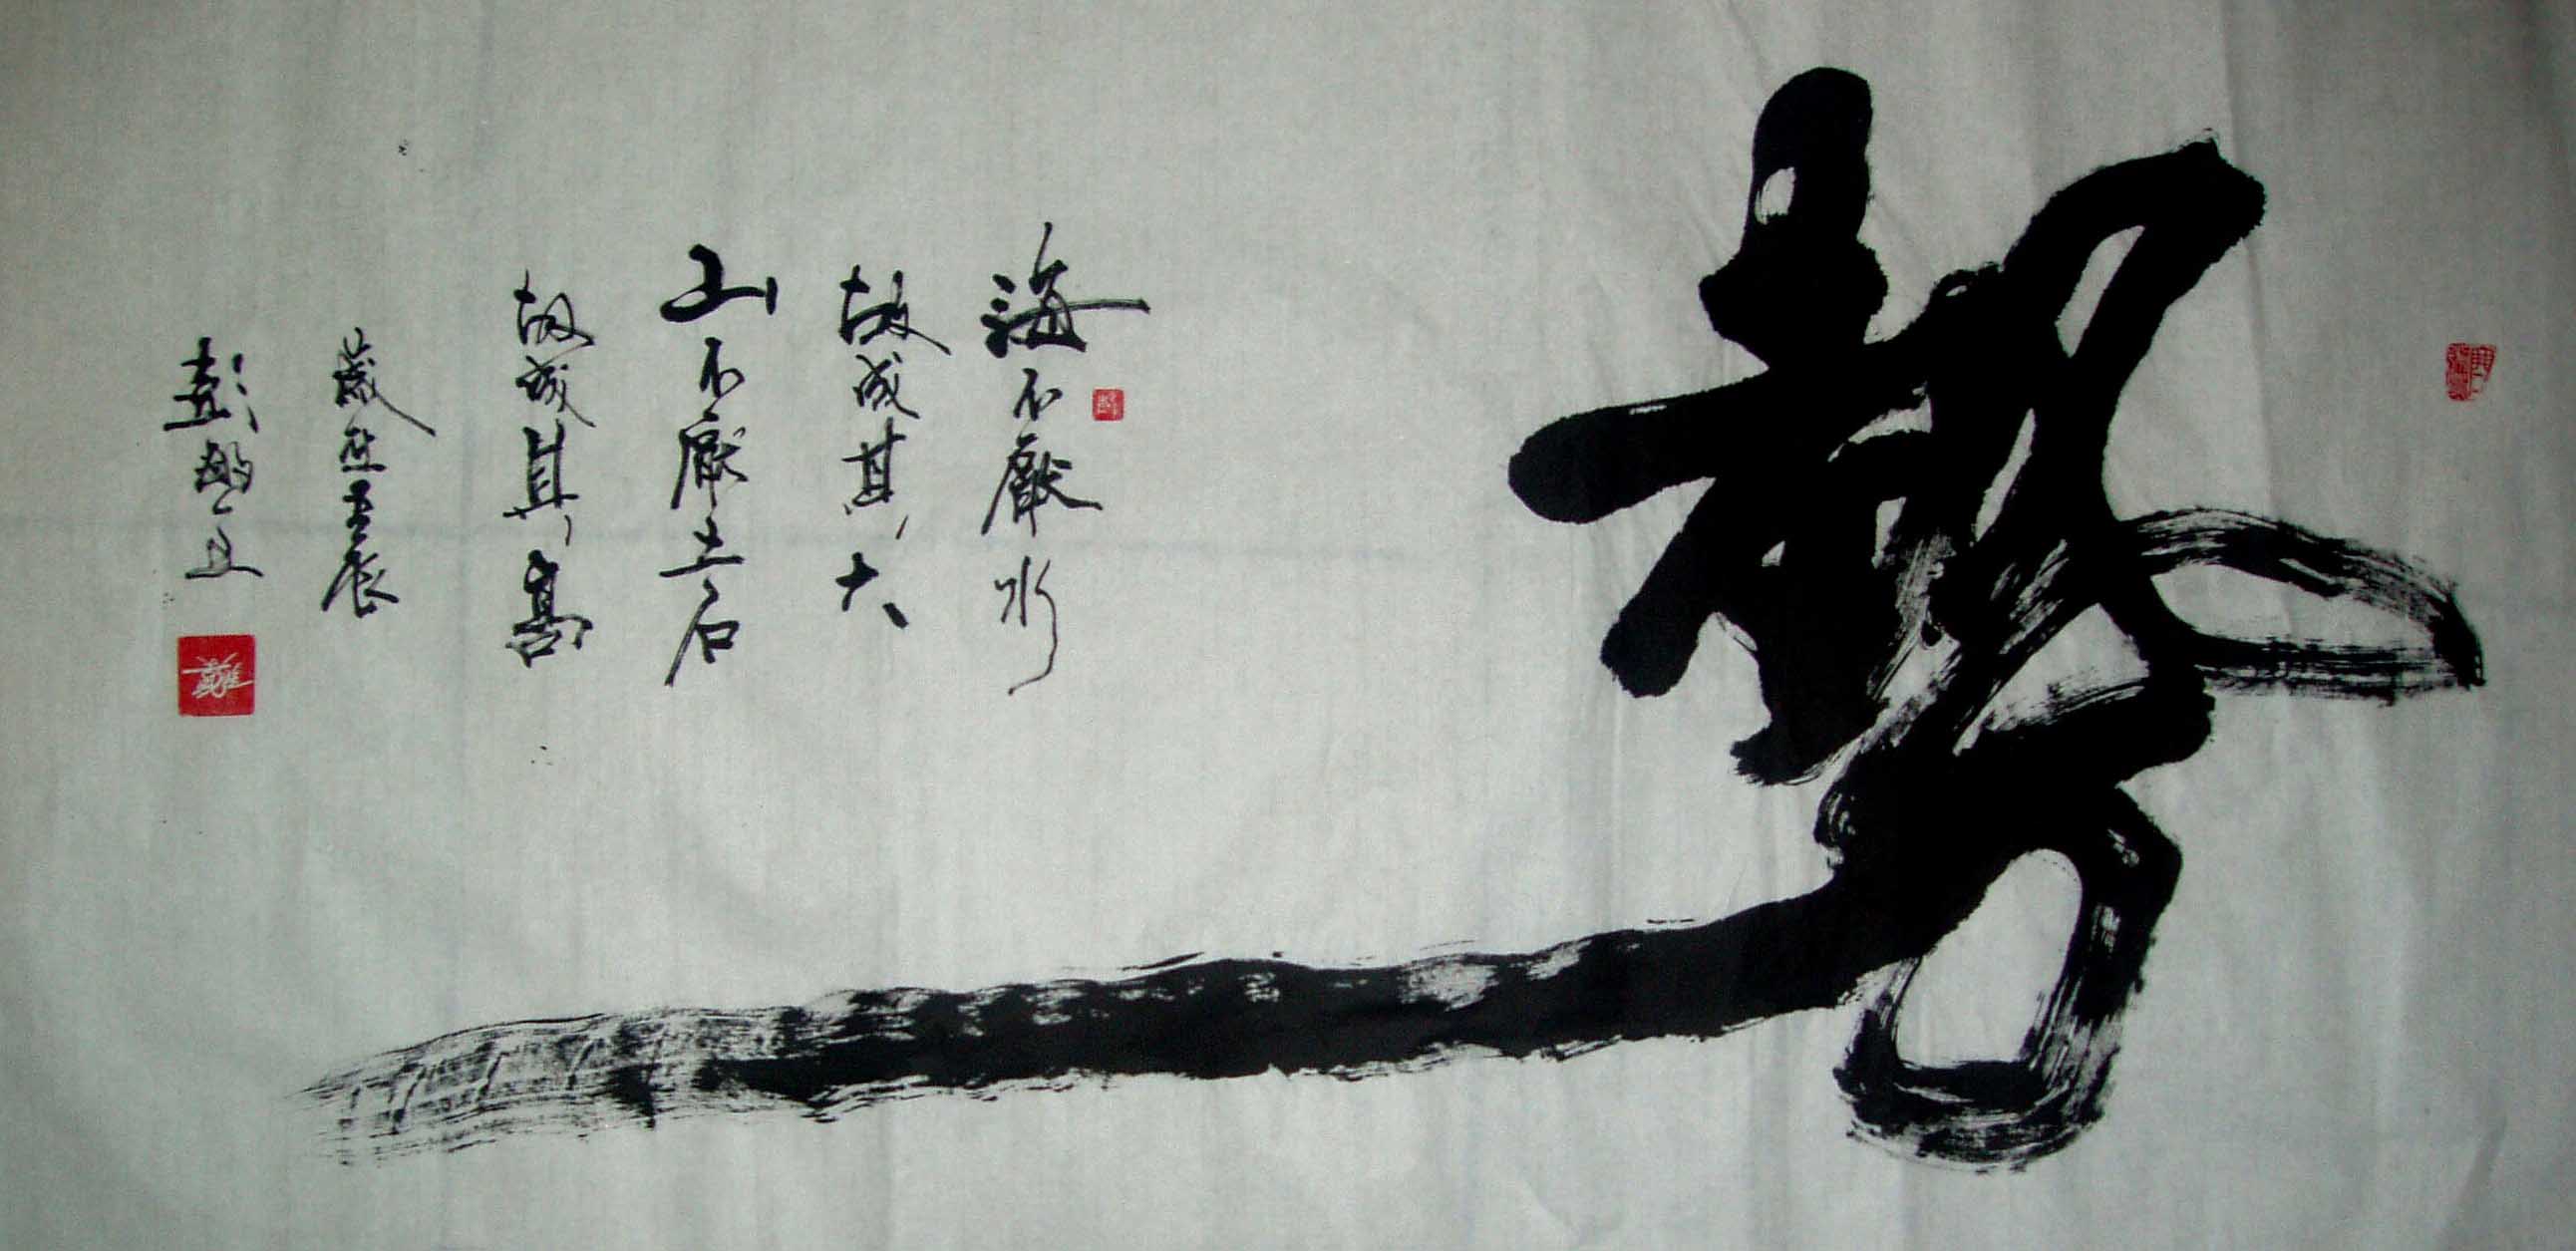 勢
海不厭水
故成其大
山不厭土石
故成其高
歲在壬辰
彭 立